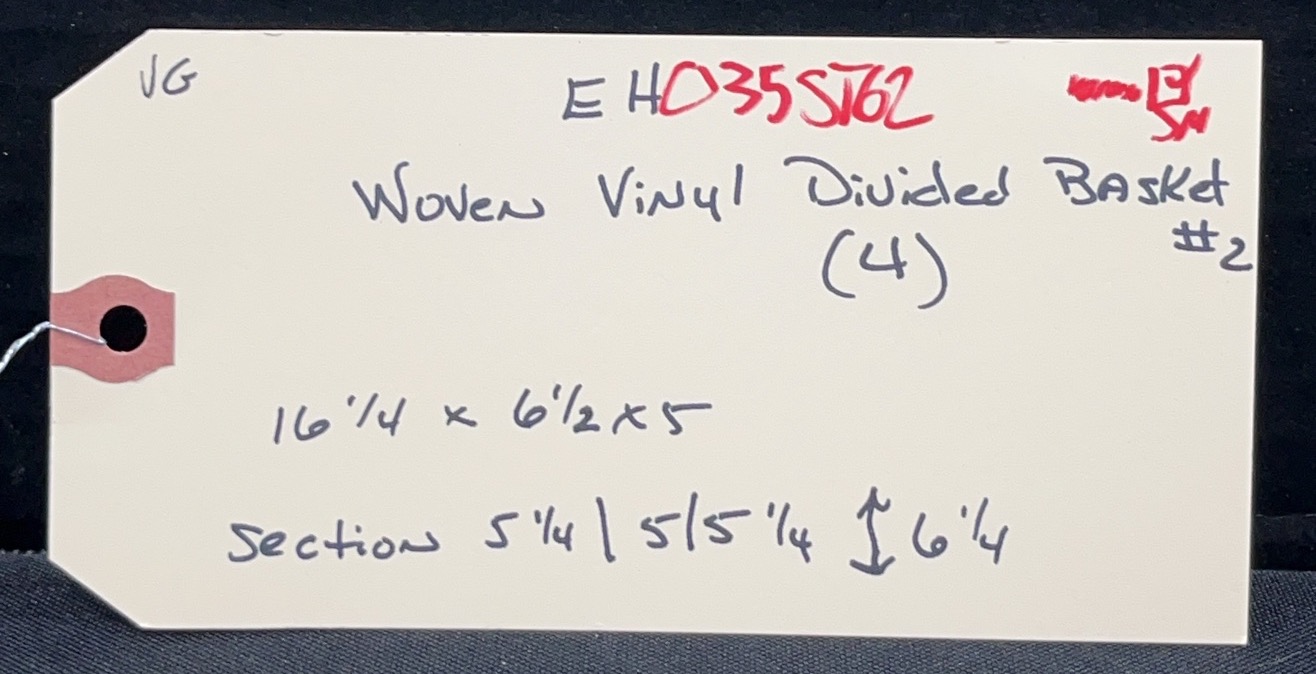 VG
EH035ST62
Woven Vinyl Divided Basket
#2
(4)
16 1/4 x 6 1/2 x 5
Section 5 1/4 | 5 | 5 1/4 ↕ 6 1/4